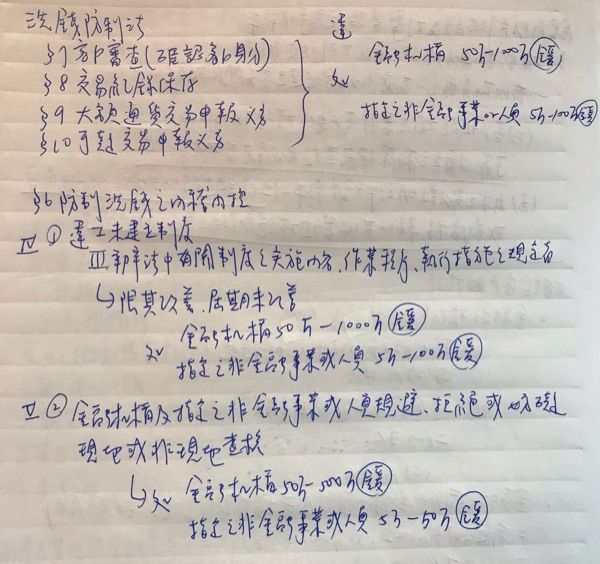 洗錢防制法
§7 客戶審查(確認客戶身分)
§8 交易紀錄保存
§9 大額通貨交易申報義務
§10 可疑交易申報義務
違
金融机構 50万-1000万 (鍰)
处
指定之非金融事業or人員 5万-100万 (鍰)
§6 防制洗錢之內稽內控
IV ① 違 I 未建立制度
III 辦法中有關制度之實施內容、作業程序、執行措施之規定者
↳ 限其改善、屆期未改善
处 金融机構 50万-1000万 (鍰)
指定之非金融事業或人員 5万-100万 (鍰)
V ② 金融机構及指定之非金融事業或人員規避、拒絕或妨礙
現地或非現地查核
↳ 处 金融机構 50万-500万 (鍰)
指定之非金融事業或人員 5万-50万 (鍰)